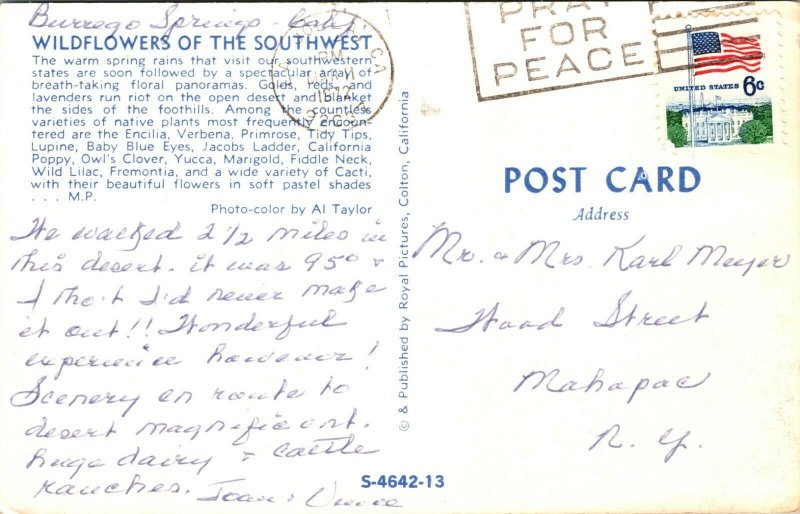 Burrego Springs - Calif.
WILDFLOWERS OF THE SOUTHWEST
The warm spring rains that visit our southwestern
states are soon followed by a spectacular array of
breath-taking floral panoramas. Golds, reds, and
lavenders run riot on the open desert and blanket
the sides of the foothills. Among the countless
varieties of native plants most frequently encoun-
tered are the Encilia, Verbena, Primrose, Tidy Tips,
Lupine, Baby Blue Eyes, Jacobs Ladder, California
Poppy, Owl's Clover, Yucca, Marigold, Fiddle Neck,
Wild Lilac, Fremontia, and a wide variety of Cacti,
with their beautiful flowers in soft pastel shades
. . . M.P.
Photo-color by Al Taylor
We walked 2 1/2 miles in
this desert. it was 95° &
I tho't I'd never make
it out!! Wonderful
experience however!
Scenery en route to
desert magnificent.
huge dairy & cattle
ranches. Joan &
© & Published by Royal Pictures, Colton, California
S-4642-13
PRAY
FOR
PEACE
CA
PM
1972
UNITED STATES 6c
POST CARD
Address
Mr. & Mrs. Karl Meyer
Wood Street
Mahapac
N. Y.